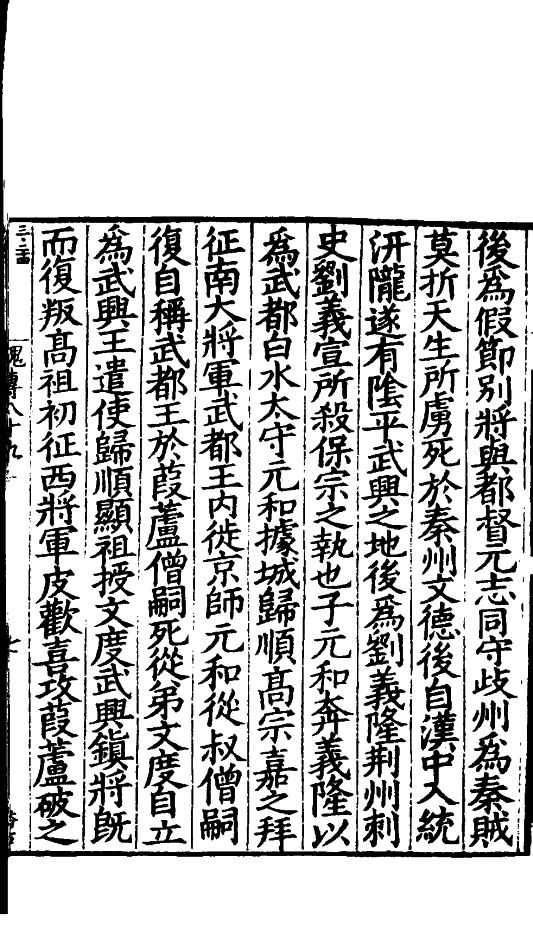 後爲假節别將與都督元志同守歧州爲秦賊
莫折天生所虜死於秦州文德後自漢中入統
汧隴遂有陰平武興之地後爲劉義隆荆州刺
史劉義宣所殺保宗之執也子元和奔義隆以
爲武都白水太守元和據城歸順髙宗嘉之拜
征南大將軍武都王内徙京師元和從叔僧嗣
復自稱武都王於葭蘆僧嗣死從弟文度自立
爲武興王遣使歸順顯祖授文度武興鎮將旣
而復叛髙祖初征西將軍皮歡喜攻葭蘆破之
傳八十九
七